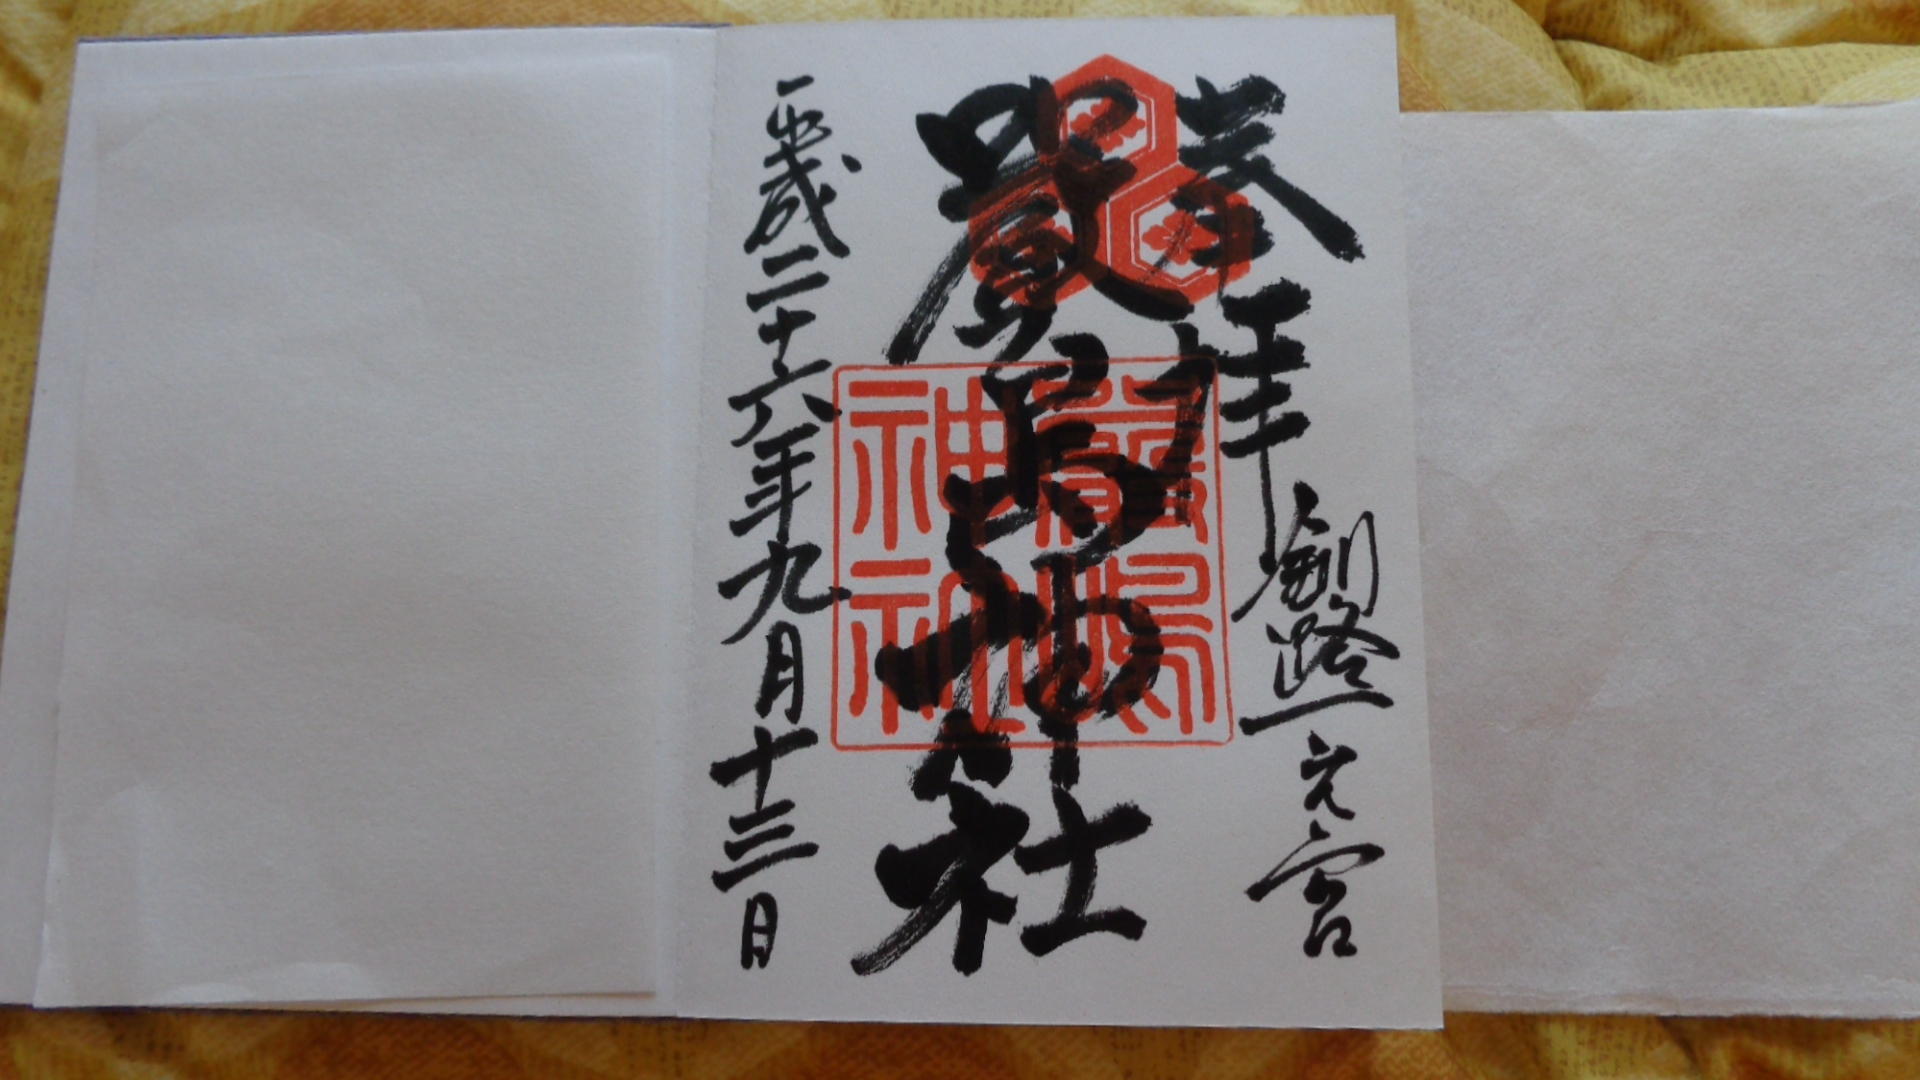 奉拝
釧路一之宮
厳島神社
厳嶋神社
平成二十六年九月十三日